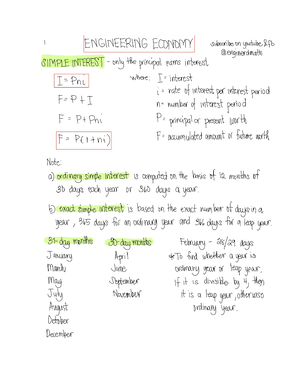 ENGINEERING ECONOMY
subscribe on youtube & fb
@enginerdmath
SIMPLE INTEREST - only the principal earns interest
I = Pni
where: I = interest
i = rate of interest per interest period
F = P + I
n = number of interest period
F = P + Pni
P = principal or present worth
F = P(1+ni)
F = accumulated amount or future worth
Note:
a) ordinary simple interest is computed on the basis of 12 months of
30 days each year or 360 days a year.
b) exact simple interest is based on the exact number of days in a
year, 365 days for an ordinary year and 366 days for a leap year.
31-day months
30-day months
February - 28/29 days
January
March
May
July
August
October
December
April
June
September
November
*To find whether a year is
ordinary year or leap year,
if it is divisible by 4, then
it is a leap year, otherwise
ordinary year.